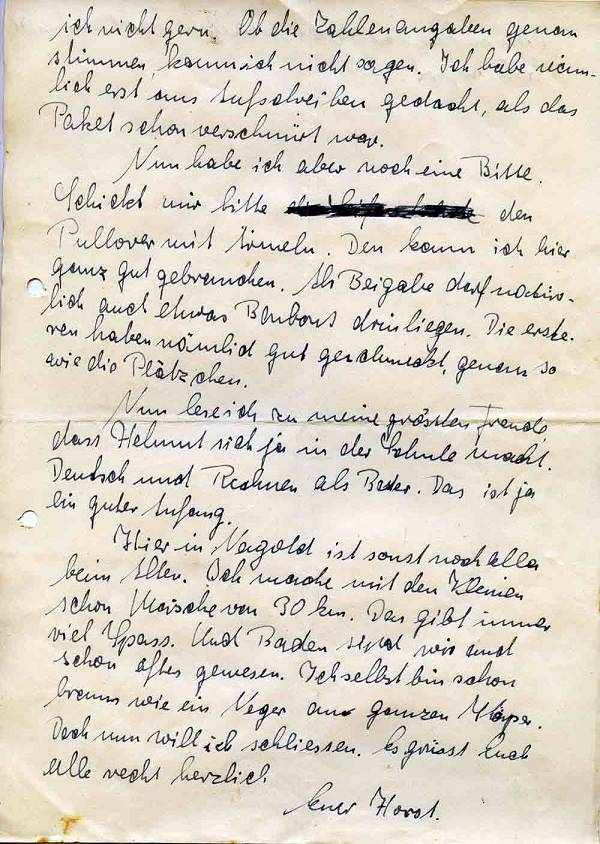 ich nicht gern. Ob die Zahlenangaben genau
stimmen, kann ich nicht sagen. Ich habe näm-
lich erst ans Aufschreiben gedacht, als das
Paket schon verschnürt war.
Nun habe ich aber noch eine Bitte.
Schickt mir bitte den
Pullover mit Ärmeln. Den kann ich hier
ganz gut gebrauchen. Als Beigabe darf natür-
lich auch etwas Bonbons drinliegen. Die erste-
ren haben nämlich gut geschmeckt, genau so
wie die Plätzchen.
Nun lese ich zu meine grössten Freude,
dass Helmut sich ja in der Schule macht.
Deutsch und Rechnen als Bester. Das ist ja
ein guter Anfang.
Hier in Nagold ist sonst noch alles
beim Alten. Ich mache mit den Kleinen
schon Märsche von 30 km. Das gibt immer
viel Spass. Und Baden sind wir auch
schon öfter gewesen. Ich selbst bin schon
braun wie ein Neger am ganzen Körper.
Doch nun will ich schliessen. Es grüsst Euch
alle recht herzlich
Euer Horst.